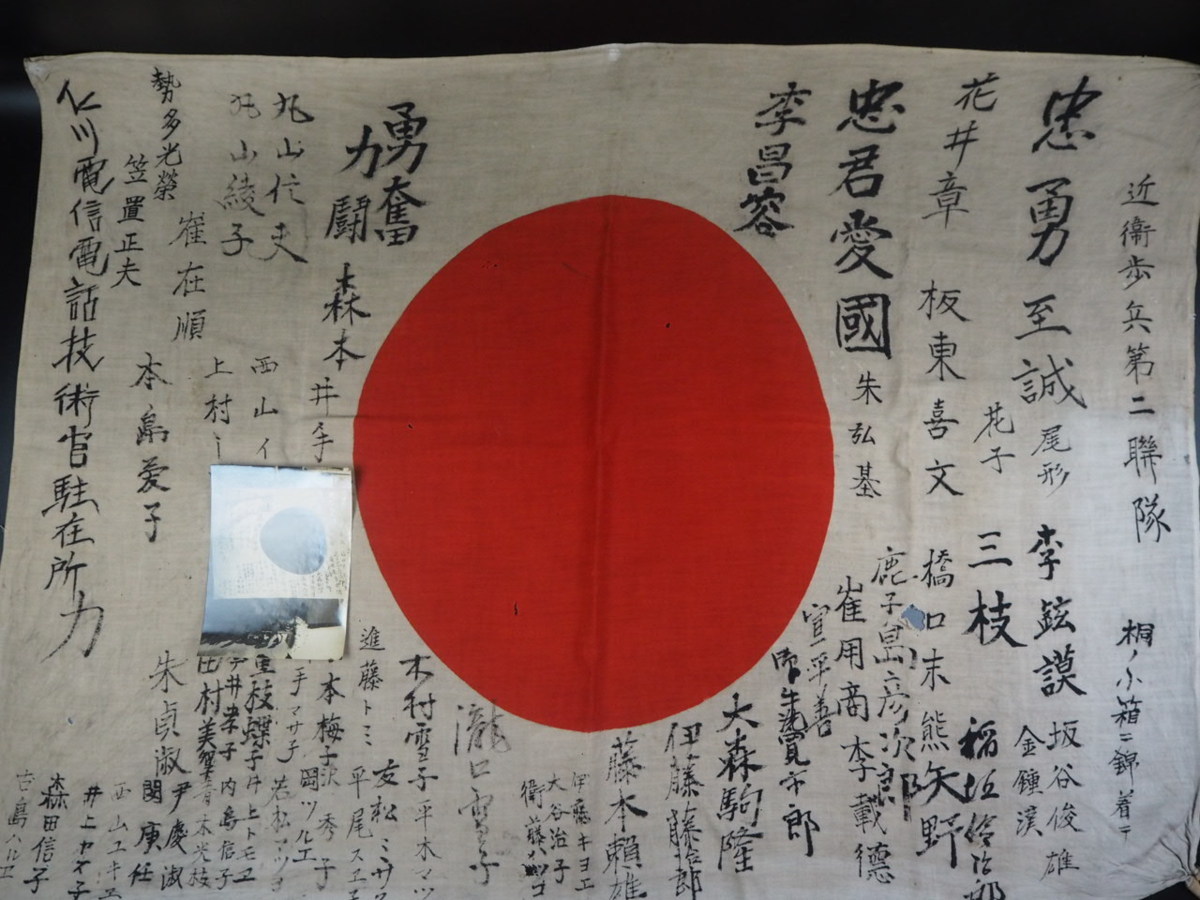 近衛歩兵第二聯隊
桐ノ小箱ニ錦着テ
忠勇至誠
尾形
李鉉謨
坂谷俊雄
金鍾漢
花子
三枝
花井章
板東喜文
橋口末熊
矢野
忠君愛國
朱弘基
鹿子島彦次郎
崔用商
李載徳
李昌容
大森駒隆
伊藤藤
藤本頼雄
伊藤キヨエ
大谷治子
勇奮
力闘
森本
井手
丸山信夫
丸山綾子
西山イ
上村
崔在順
勢多光榮
笠置正夫
本島愛子
仁川電信電話技術官駐在所
力
瀧口雪子
木村雪子
平木マツ
進藤トミ
友松ミサヲ
平尾スエ子
本梅子
秀子
手マサ子
岡ツルエ
若松マツヨ
重枝蝶子
井上トモヱ
内島信子
村美智
青木光枝
朱貞淑
尹慶淑
閔庚任
西山ユキエ
井上ヤヱ子
森田信子
吉島ハルエ